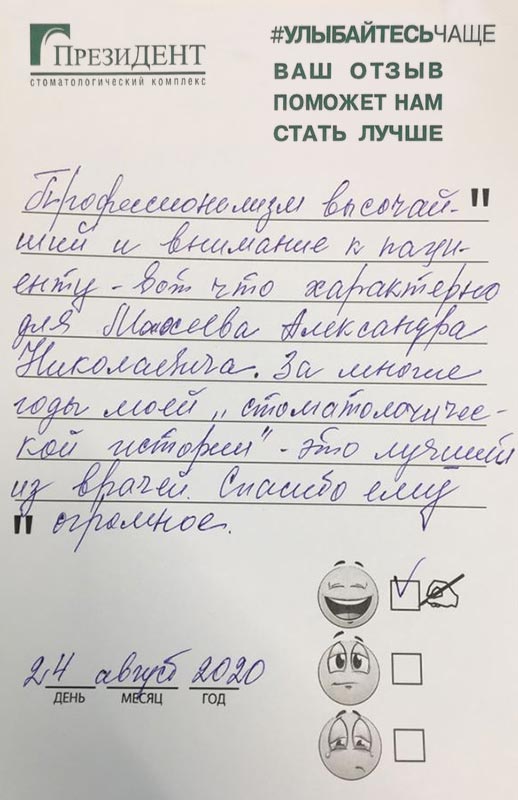 ПрезиДЕНТ
СТОМАТОЛОГИЧЕСКИЙ КОМПЛЕКС
#УЛЫБАЙТЕСЬЧАЩЕ
ВАШ ОТЗЫВ
ПОМОЖЕТ НАМ
СТАТЬ ЛУЧШЕ
"
Профессионализм высочай-
ший и внимание к паци-
енту - вот что характерно
для Михеева Александра
Николаевича. За многие
годы моей „стоматологичес-
кой истории" - это лучший
из врачей. Спасибо ему
" огромное.
24 август 2020
ДЕНЬ МЕСЯЦ ГОД